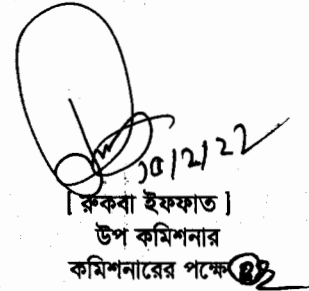 [ রুকবা ইফফাত ]
উপ কমিশনার
কমিশনারের পক্ষে